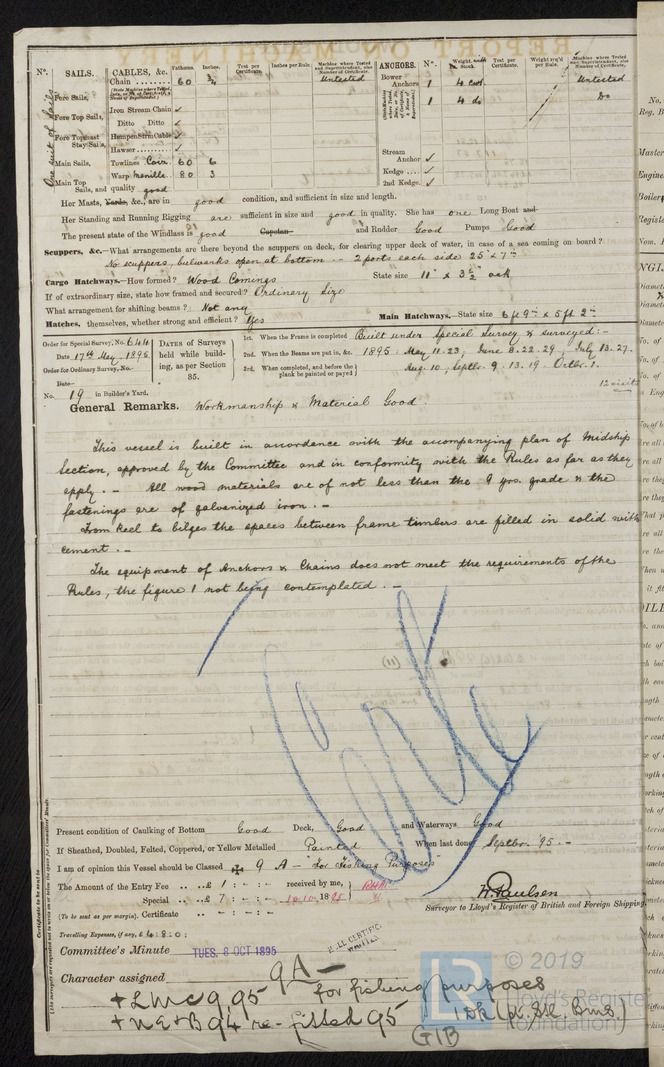 REPORT ON MACHINERY
No. SAILS. CABLES, &c. Fathoms. Inches. Test per Certificate. Inches per Rule. Machine where Tested and Superintendent, also Number of Certificate. ANCHORS. No. Weight. Stock. Test per Certificate. Weight req'd per Rule. Machine where Tested and Superintendent, also Number of Certificate.
One suit of Sails
Chain 60 3/4 Untested Bower Anchors 1 4 cwt. Untested
Fore Sails, 1 4 do Do
Iron Stream Chain ✓
Fore Top Sails, Ditto Ditto ✓
Fore Topmast Stay Sails, Hempen Strm Cable ✓
Hawser ✓ Stream Anchor ✓
Main Sails, Towlines Coir 60 6 Kedge ✓
Main Top Sails, and quality good Warp Manilla 80 3 2nd Kedge. ✓
Her Masts, Yards, &c., are in good condition, and sufficient in size and length.
Her Standing and Running Rigging are sufficient in size and good in quality. She has one Long Boat and
The present state of the Windlass is good Capstan and Rudder Good Pumps Good
Scuppers, &c.—What arrangements are there beyond the scuppers on deck, for clearing upper deck of water, in case of a sea coming on board?
No scuppers, bulwarks open at bottom - 2 ports each side 25" x 7"
Cargo Hatchways.—How formed? Wood Comings State size 11" x 3 1/2" oak
If of extraordinary size, state how framed and secured? Ordinary Size
What arrangement for shifting beams? Not any
Hatches, themselves, whether strong and efficient? Yes Main Hatchways.—State size 6 ft 9 in x 5 ft 2 in
Order for Special Survey, No. 644
Date 17th May, 1895
Order for Ordinary Survey, No.
Date
No. 19 in Builder's Yard.
DATES of Surveys held while building, as per Section 35.
1st. When the Frame is completed Built under Special Survey & surveyed:-
2nd. When the Beams are put in, &c. 1895. May 11.23, June 8.22.29, July 13.27.
3rd. When completed, and before the plank be painted or payed Aug. 10, Septbr. 9.13.19. Octbr. 1.
12 visits
General Remarks. Workmanship & Material Good.
This vessel is built in accordance with the accompanying plan of Midship
Section, approved by the Committee and in conformity with the Rules as far as they
apply. - All wood materials are of not less than the 9 yrs. grade & the
fastenings are of galvanized iron. -
From keel to bilges the spaces between frame timbers are filled in solid with
cement. -
The equipment of Anchors & Chains does not meet the requirements of the
Rules, the figure 1 not being contemplated. -
Present condition of Caulking of Bottom Good Deck, Good and Waterways Good
If Sheathed, Doubled, Felted, Coppered, or Yellow Metalled Painted When last done Septbr. '95. -
I am of opinion this Vessel should be Classed ✠ 9 A - "For Fishing Purposes"
The Amount of the Entry Fee £ 1 : - : - received by me,
Special £ 7 : - : - 18 95
(To be sent as per margin). Certificate - : - : -
W. Paulsen
Surveyor to Lloyd's Register of British and Foreign Shipping.
Travelling Expenses, if any, £ 4 : 8 : 0
Committee's Minute TUES. 8 OCT 1895
Character assigned 9A -
for fishing purposes
+LMC 9,95
+NE&B 94 re-fitted 95
1 Dk (pt. Stl. Bms.)
GIB
LR © 2019
Lloyd's Register
Foundation